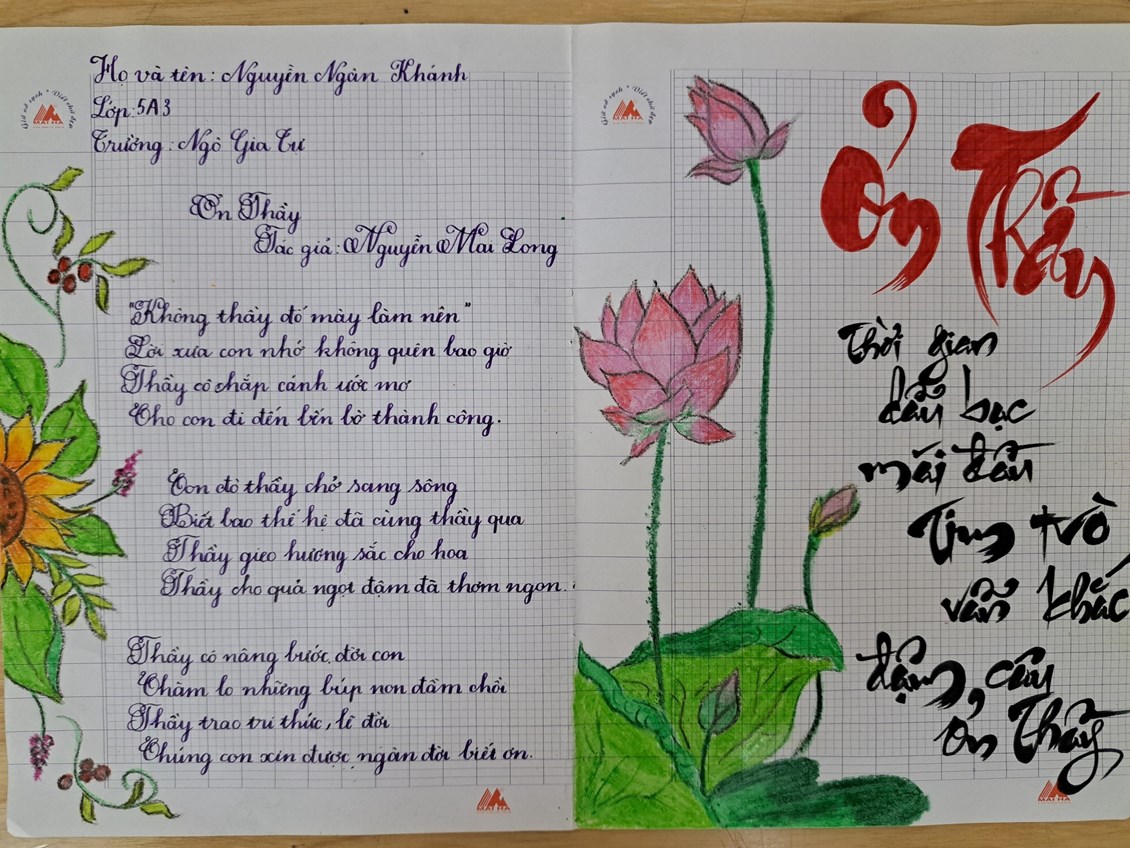 Họ và tên: Nguyễn Ngân Khánh
Lớp: 5A3
Trường: Ngô Gia Tự
Ơn Thầy
Tác giả: Nguyễn Mai Long
"Không thầy đố mày làm nên"
Lời xưa con nhớ không quên bao giờ
Thầy cô chắp cánh ước mơ
Cho con đi đến bến bờ thành công.
Con đò thầy chở sang sông
Biết bao thế hệ đã cùng thầy qua
Thầy gieo hương sắc cho hoa
Thầy cho quả ngọt đậm đà thơm ngon.
Thầy cô nâng bước đời con
Chăm lo những búp non đâm chồi
Thầy trao tri thức, lẽ đời
Chúng con xin được ngàn đời biết ơn.
Giữ vở sạch • Viết chữ đẹp
MAI HA
Giữ vở sạch • Viết chữ đẹp
MAI HA
Ơn Thầy
Thời gian
dẫu bạc
mái đầu
Tim trò
vẫn khắc
đậm, câu
ơn Thầy
MAI HA